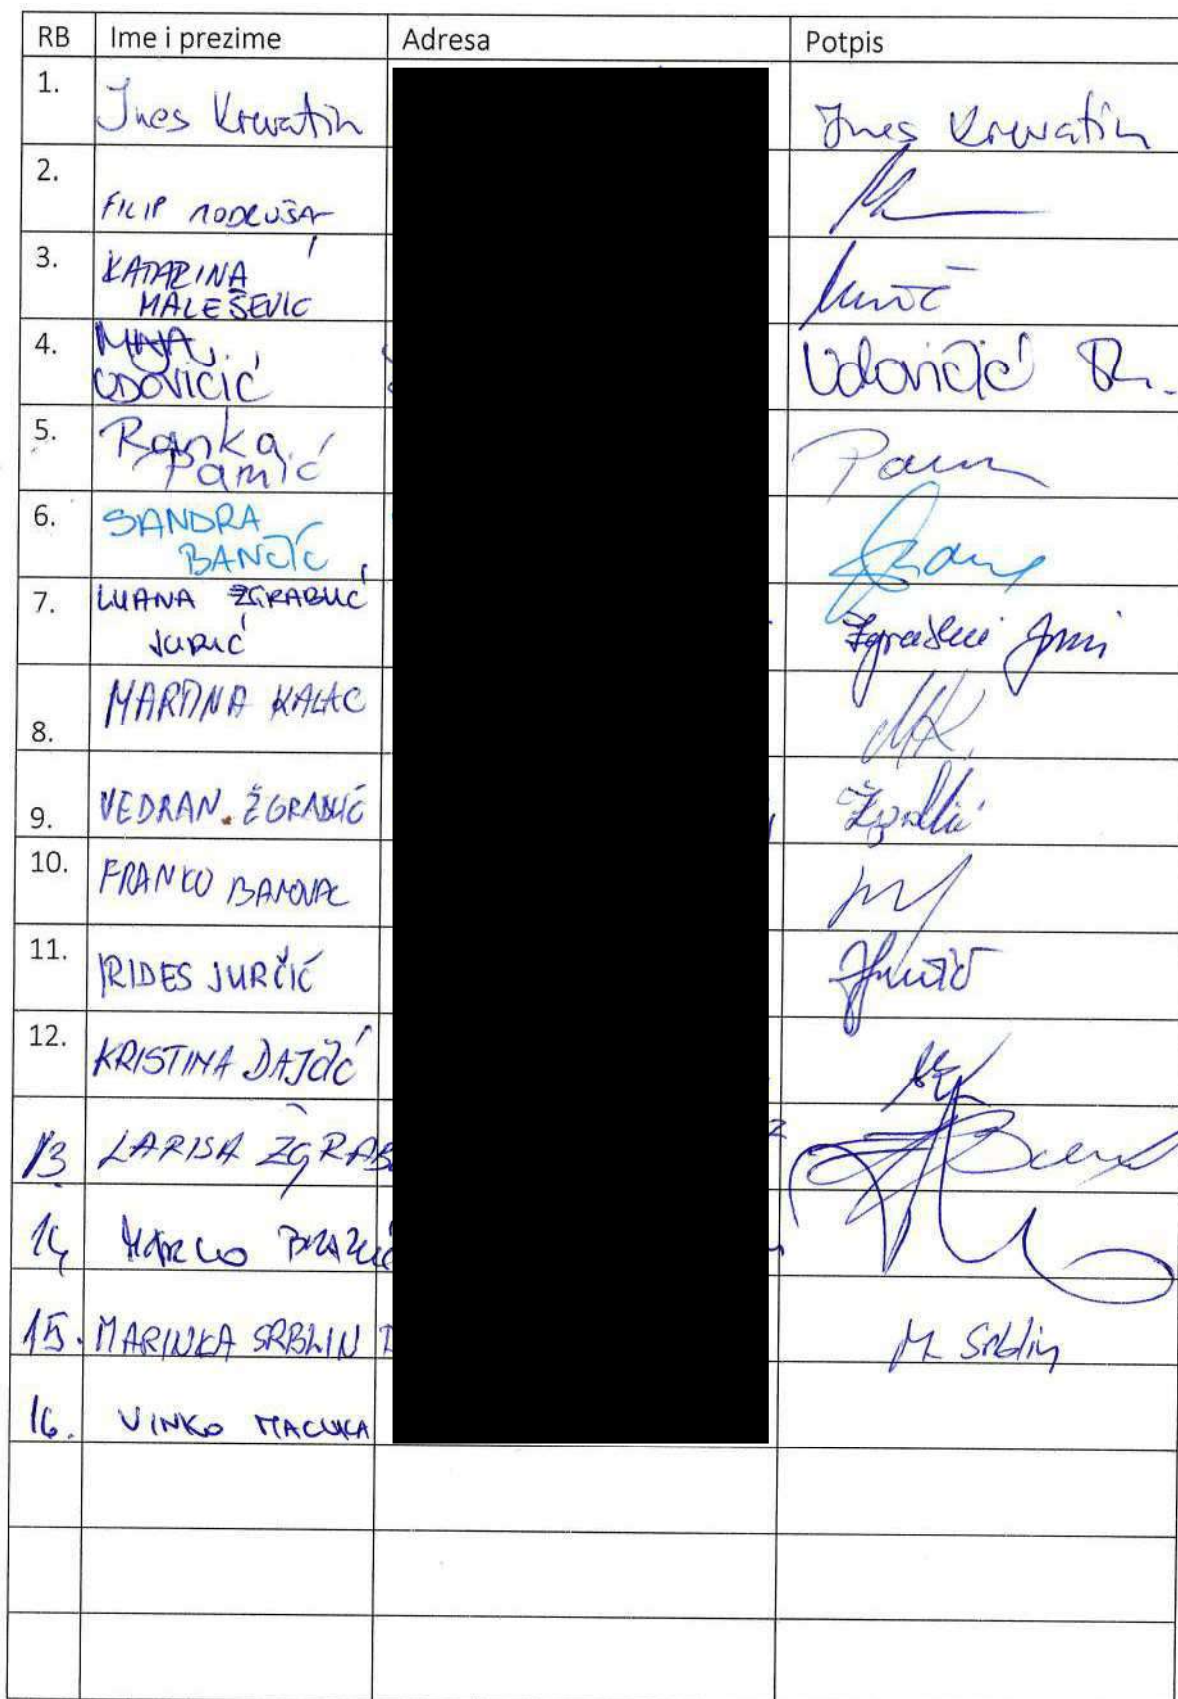 RB Ime i prezime Adresa Potpis
1. Ines Krevatin Ines Krevatin
2. FILIP
3. KATARINA
MALEŠEVIĆ
4. MAJA
UDOVIČIĆ Udovičić
5. Ranka
Pamić
6. SANDRA
BANČIĆ
7. LUANA ŽGRABLIĆ
JURIĆ
8. MARTINA KALAC
9. VEDRAN ŽGRABLIĆ
10. FRANKO BANOVAC
11. IRIDES JURČIĆ
12. KRISTINA DAJČIĆ
13 LARISA ŽGRAB
14 MARKO
15. MARINKA SRBLIN M Srblin
16. VINKO MACUKA